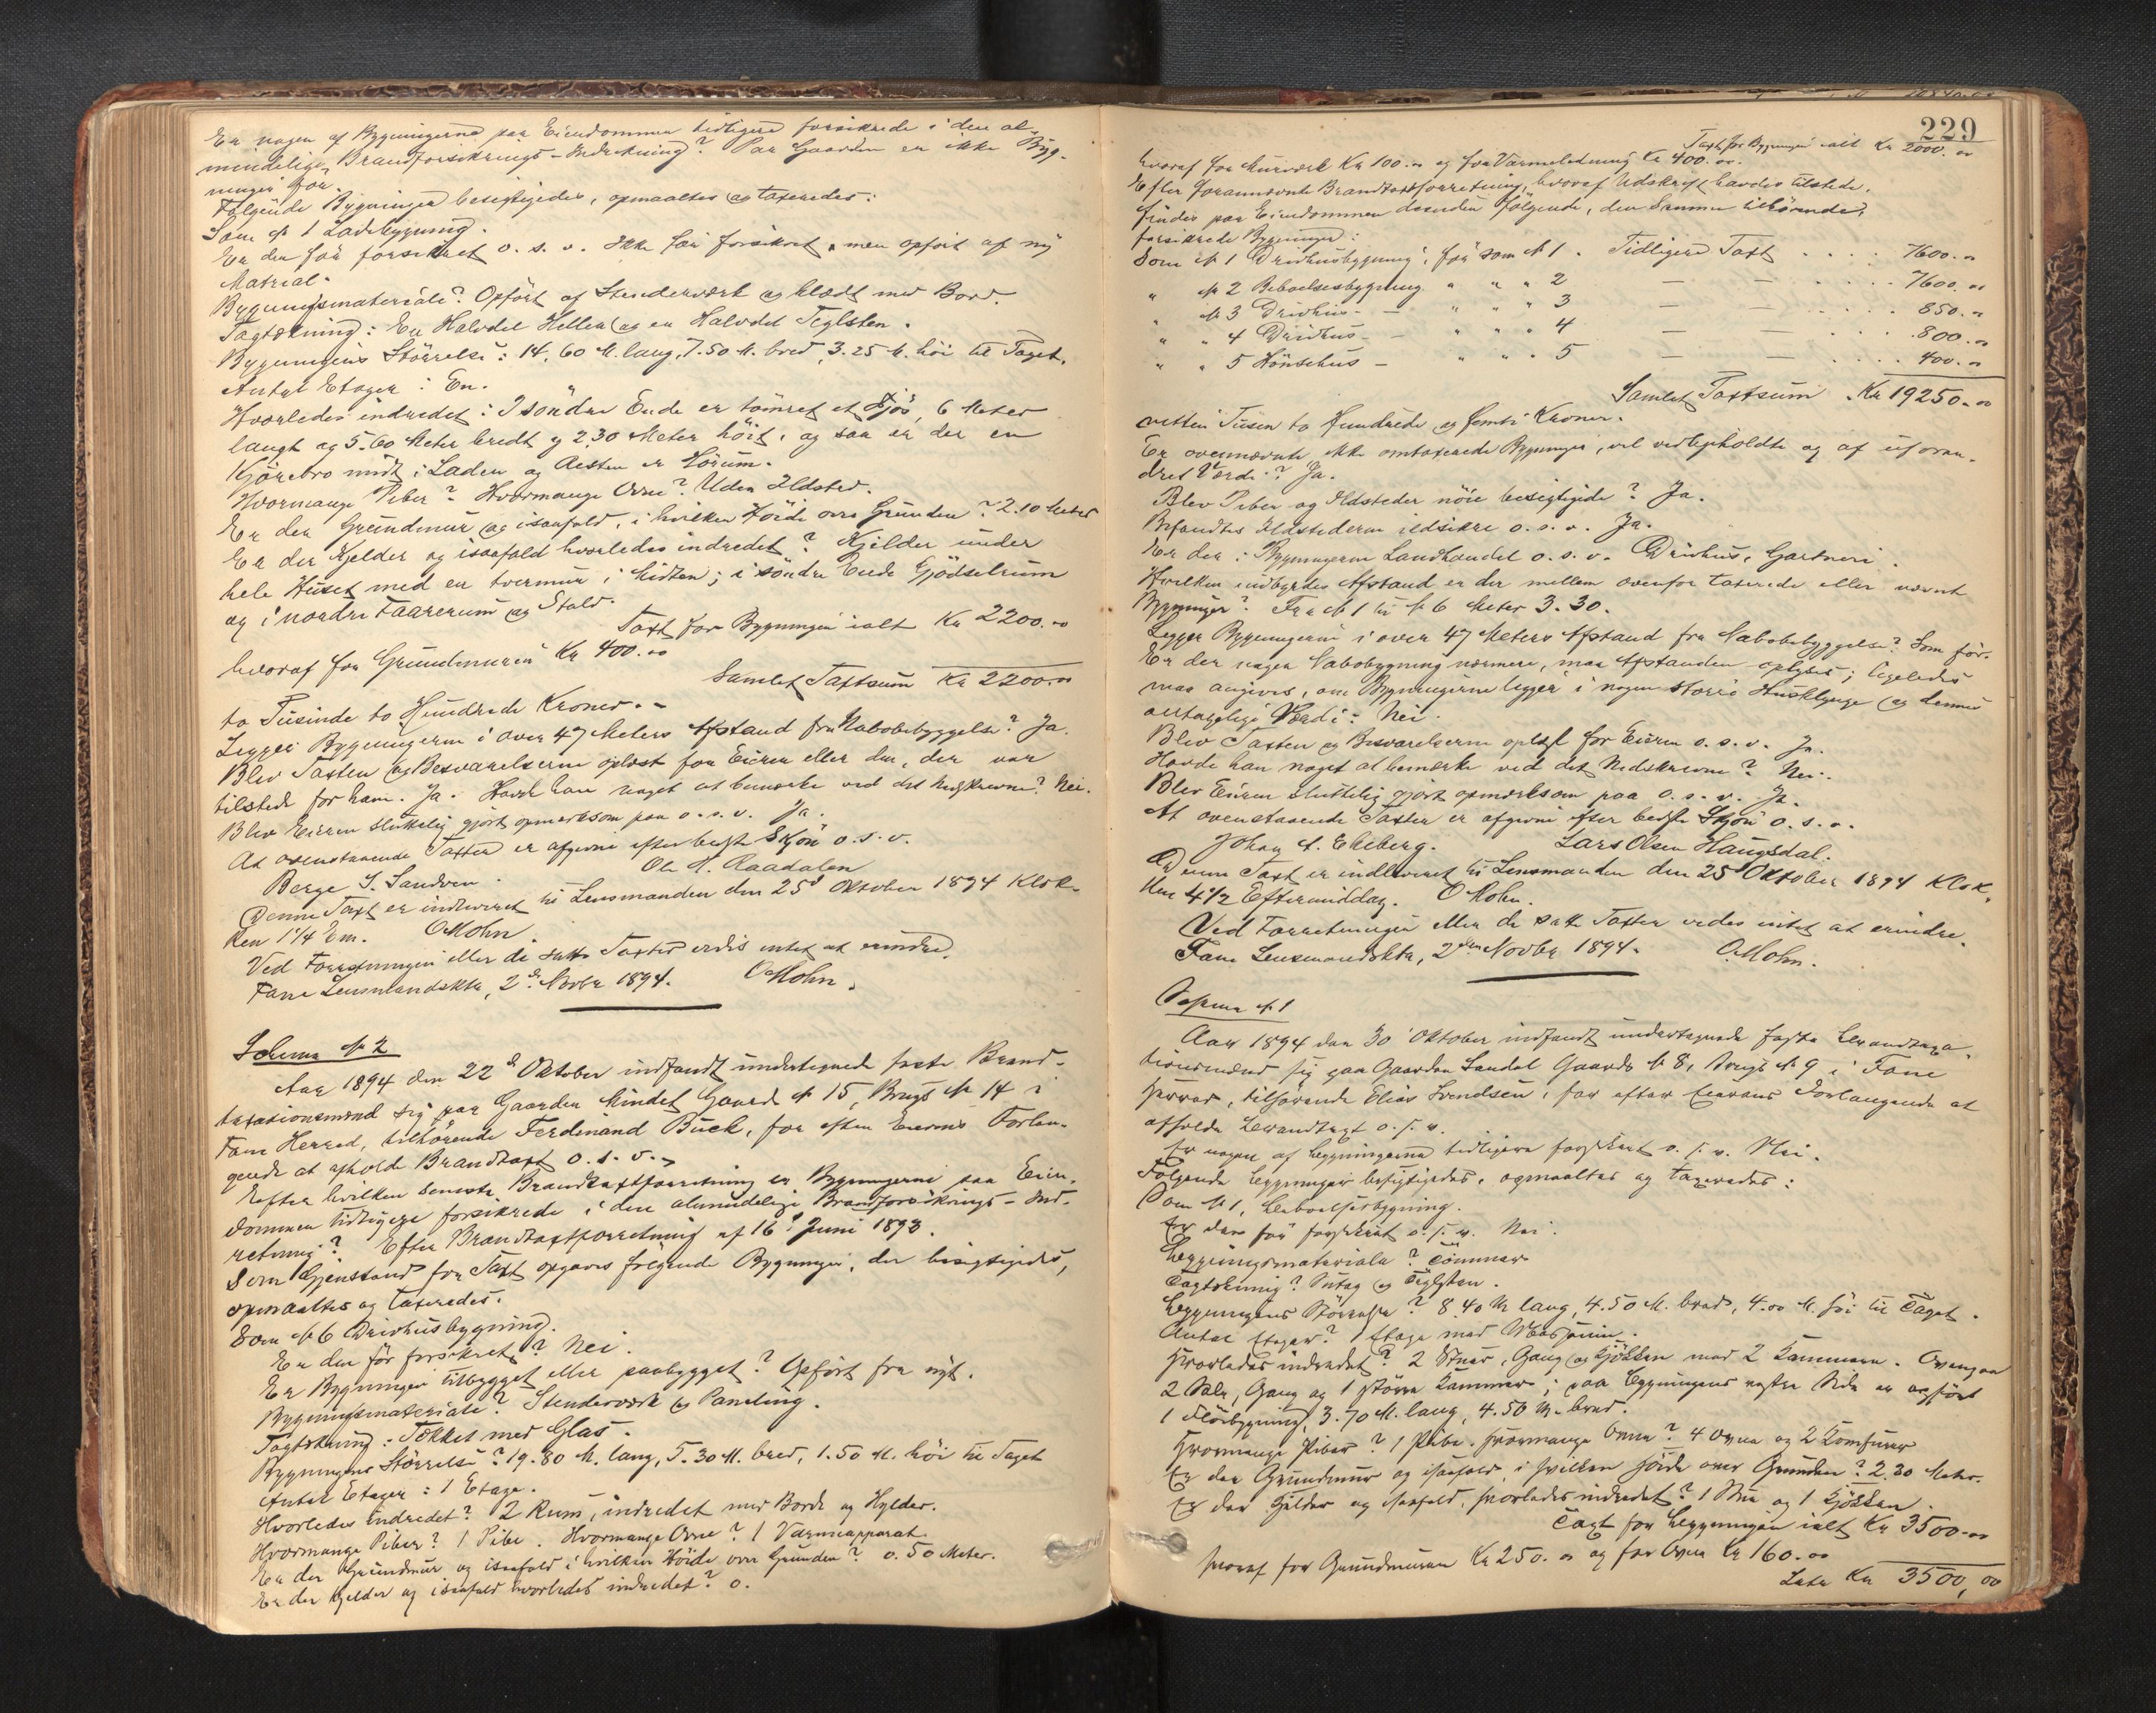 Er nogen af Bygningerne paa Eiendommen tidligere forsikrede i den al-
mindelige Brandforsikrings-Indretning? Paa Gaarden er ikke Byg-
ninger før.
Følgende Bygninger besigtigedes, opmaaltes og taxeredes:
Som № 1 Ladebygning.
Er den før forsikret o. s. v. Ikke før forsikret, men opført af ny
Matrial.
Bygningsmateriale? Opført af Stenderværk og klædt med Bord.
Tagtækning: En Halvdel Heller og en Halvdel Teglsten.
Bygningens Størrelse: 14.60 M. lang, 7.50 M. bred, 3.25 M. høi til Taget.
Antal Etager: En.
Hvorledes indredet: I søndre Ende er tømret et Fjøs, 6 Meter
langt og 5.60 Meter bredt og 2.30 Meter høit, og saa er der en
Kjørebro midt i Laden og Resten er Hørum.
Hvormange Piber? Hvormange Ovne? Uden Ildsted.
Er der Grundmur og isaafald, i hvilken Høide over Grunden? 2.10 Meter
Er der Kjelder og isaafald hvorledes indredet? Kjelder under
hele Huset med en tvermur i Midten; i søndre Ende Gjødselrum
og i nordre Faarerum og Stald.
Taxt for Bygningen ialt Kr 2200.00
hvoraf for Grundmuren Kr 400.00
Samlet Taxtsum Kr 2200.00
to Tusinde to Hundrede Kroner.-
Legger Bygningerne i over 47 Meters Afstand fra Nabobebyggelse? Ja.
Blev Taxten og Besvarelserne oplæst for Eieren eller den, der var
tilstede for ham. Ja. Havde han noget at bemærke ved det Nedskrevne? Nei.
Blev Eieren sluttelig gjort opmærksom paa o. s. v. Ja.
At ovenstaaende Taxter er afgivne efter bedste Skjøn o. s. v.
Berge J. Sandven. Ole H. Raadalen
Denne Taxt er indleveret til Lensmanden den 25d Oktober 1894 Klok-
ken 1¼ Em. OMohn.
Ved Forretningen eller de satte Taxter vedes intet at erindre.
Fane Lensmandskts, 2de Novbr 1894. OMohn.
Schema № 2
Aar 1894 den 22d Oktober indfandt undertegnede faste Brand-
taxationsmænd sig paa Gaarden Mindet Gaard № 15, Brugs № 14 i
Fane Herred, tilhørende Ferdinand Buck, for efter Eierens Forlan-
gende at afholde Brandtaxt o. s. v.
Efter hvilken seneste Brandtaxtforretning er Bygningerne paa Eien-
dommen tidligere forsikrede i den almindelige Brandforsikrings-Ind-
retning? Efter Brandtaxtforretning af 16d Juni 1893.
Som Gjenstand for Taxt opgaves følgende Bygninger, der besigtigedes,
opmaaltes og taxeredes.
Som № 6 Drivhusbygning.
Er den før forsikret? Nei.
Er Bygningen tilbygget eller paabygget? Opført fra nyt.
Bygningsmateriale? Stenderværk og Paneling.
Tagtækning: Tækket med Glas.
Bygningens Størrelse? 19.80 M. lang, 5.30 M. bred, 1.50 M. høi til Taget
Antal Etager: 1 Etage.
Hvorledes indredet? 2 Rum, indredet med Borde og Hylder.
Hvormange Piber? 1 Pibe. Hvormange Ovne? 1 Varmeapparat.
Er der Grundmur og isaafald i hvilken Høide over Grunden? 0.50 Meter.
Er der Kjelder og isaafald hvorledes indredet? 0.
229
Taxt for Bygningen ialt Kr 2000.00
hvoraf for Murværk Kr 100.00 og for Varmeledning Kr 400.00.
Efter forannævnte Brandtaxtforretning, hvoraf Udskrift havdes tilstede,
findes paa Eiendommen desuden følgende, den Samme tilhørende,
forsikrede Bygninger:
Som № 1 Drivhusbygning, før som № 1. Tidligere Taxt . . . . 7600.00
" № 2 Beboelsesbygning " " " 2 — — . . . . 7600.00
" № 3 Drivhus - — " " " 3 — — . . . . 850.00
" " 4 Drivhus - — " " " 4 — — . . . . 800.00
" " 5 Hønsehus — " " " 5 — — . . . . 400.00
Samlet Taxtsum . Kr 19250.00
nitten Tusen to Hundrede og femti Kroner.
Er ovennævnte ikke omtaxerede Bygninger, vel vedligeholdte og af uforan-
dret Værdi? Ja.
Blev Piber og Ildsteder nøie besigtigede? Ja.
Befandtes Ildstederne ildsikre o. s. v. Ja.
Er der i Bygningerne Landhandel o. s. v. Drivhus, Gartneri.
Hvilken indbyrdes Afstand er der mellem ovenfor taxerede eller nævnte
Bygninger? Fra № 1 til № 6 Meter 3.30.
Legger Bygningerne i over 47 Meters Afstand fra Nabobebyggelse? Som før.
Er der nogen Nabobygning nærmere, maa Afstanden oplyses; ligeledes
maa angives, om Bygningerne legger i nogen større Husklynge og dennes
antagelige Værdi: Nei.
Blev Taxten og Besvarelserne oplæst for Eieren o. s. v. Ja.
Havde han noget at bemærke ved det Nedskrevne? Nei.
Blev Eieren sluttelig gjort opmærksom paa o. s. v. Ja.
At ovenstaaende Taxter er afgivne efter bedste Skjøn o. s. v.
Johan A. Ekeberg. Lars Olsen Haugsdal.
Denne Taxt er indleveret til Lensmanden den 25d Oktober 1894 Klok-
ken 4½ Eftermiddag. OMohn.
Ved Forretningen eller de satte Taxter vedes intet at erindre.
Fane Lensmandskts, 2den Novbr 1894. OMohn.
Schema № 1
Aar 1894 den 30 Oktober indfandt undertegnede faste Brandtaxa-
tionsmænd sig paa Gaarden Sandal Gaards № 8, Brugs № 9 i Fane
Herred, tilhørende Elias Svendsen, for efter Eierens Forlangende at
afholde Brandtaxt o. s. v.
Er nogen af Bygningerne tidligere forsikret o. s. v. Nei.
Følgende Bygninger besigtigedes, opmaaltes og taxeredes:
Som № 1, Beboelsesbygning.
Er den før forsikret o. s. v. Nei.
Bygningsmateriale? Tømmer
Tagtækning? Sutag og Teglsten.
Bygningens Størrelse? 8.40 M lang, 4.50 M. bred, 4.00 M. høi til Taget.
Antal Etager? 1 Etage med Messanin.
Hvorledes indredet? 2 Stuer, Gang og Kjøkken med 2 Kammere. Ovenpaa
2 Sale, Gang og 1 større Kammer; paa Bygningens vestre Side er opført
1 Fløibygning, 3.70 M. lang, 4.50 M. bred.
Hvormange Piber? 1 Pibe. Hvormange Ovne? 4 Ovne og 2 Komfurer
Er der Grundmur og isaafald, i hvilken Høide over Grunden? 2.30 Meter.
Er der Kjelder og isaafald, hvorledes indredet? 1 Stue og 1 Kjøkken.
Taxt for Bygningen ialt Kr 3500.00
hvoraf for Grundmuren Kr 250.00 og for Ovne Kr 160.00
Late Kr 3500,00